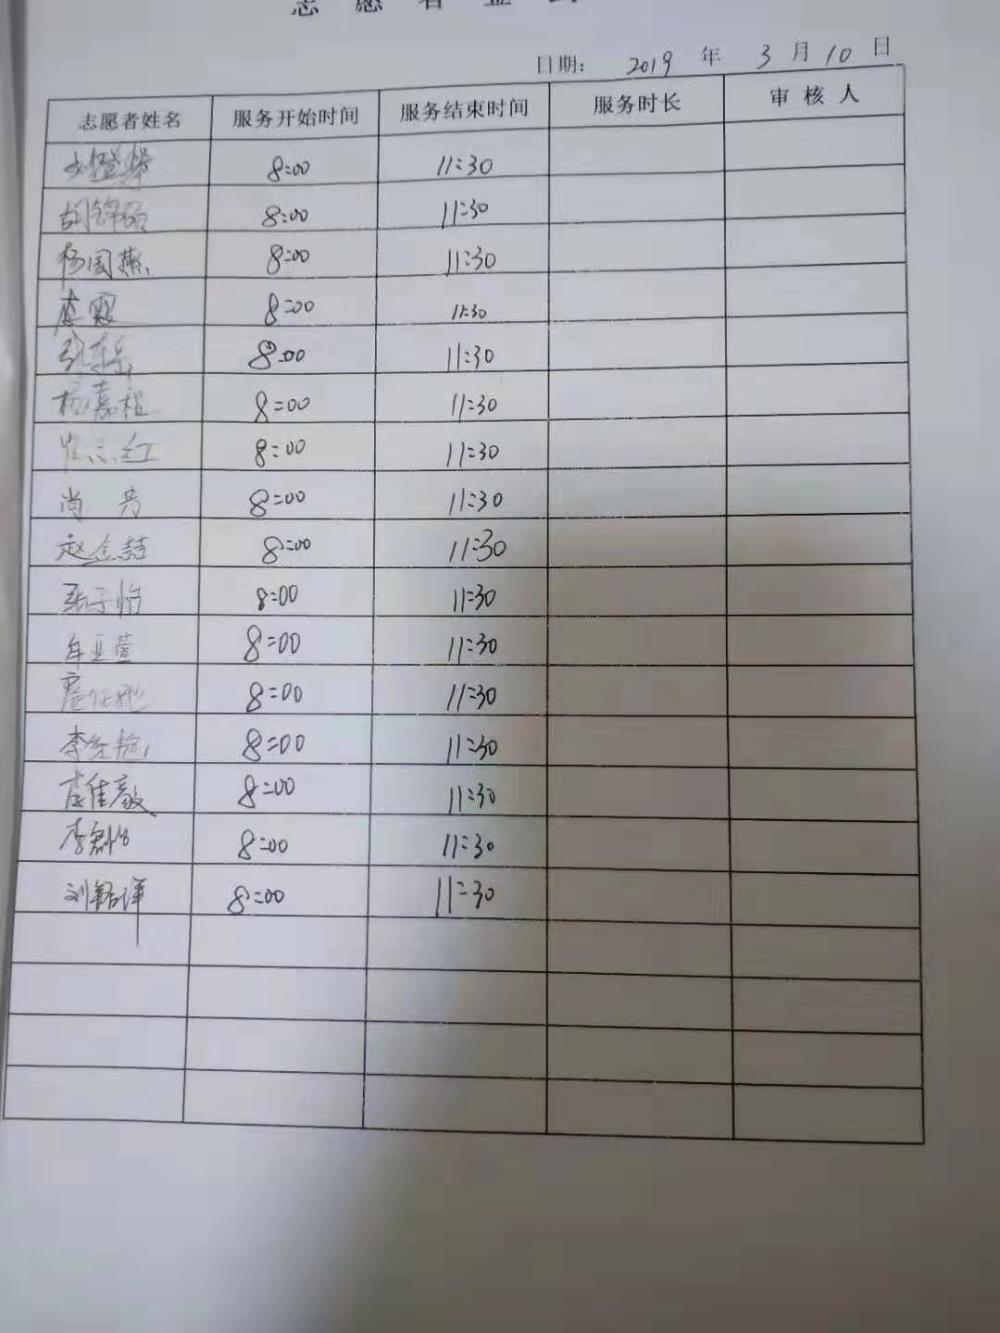 志愿者
日期: 2019 年 3 月 10 日
志愿者姓名 服务开始时间 服务结束时间 服务时长 审核人
8:00 11:30
8:00 11:30
杨国燕 8:00 11:30
李霞 8:00 11:30
8:00 11:30
杨嘉桓 8:00 11:30
红 8:00 11:30
尚芳 8:00 11:30
赵金喆 8:00 11:30
张子怡 8:00 11:30
牟亚萱 8:00 11:30
8:00 11:30
李 8:00 11:30
佳毅 8:00 11:30
李 8:00 11:30
刘 8:00 11:30